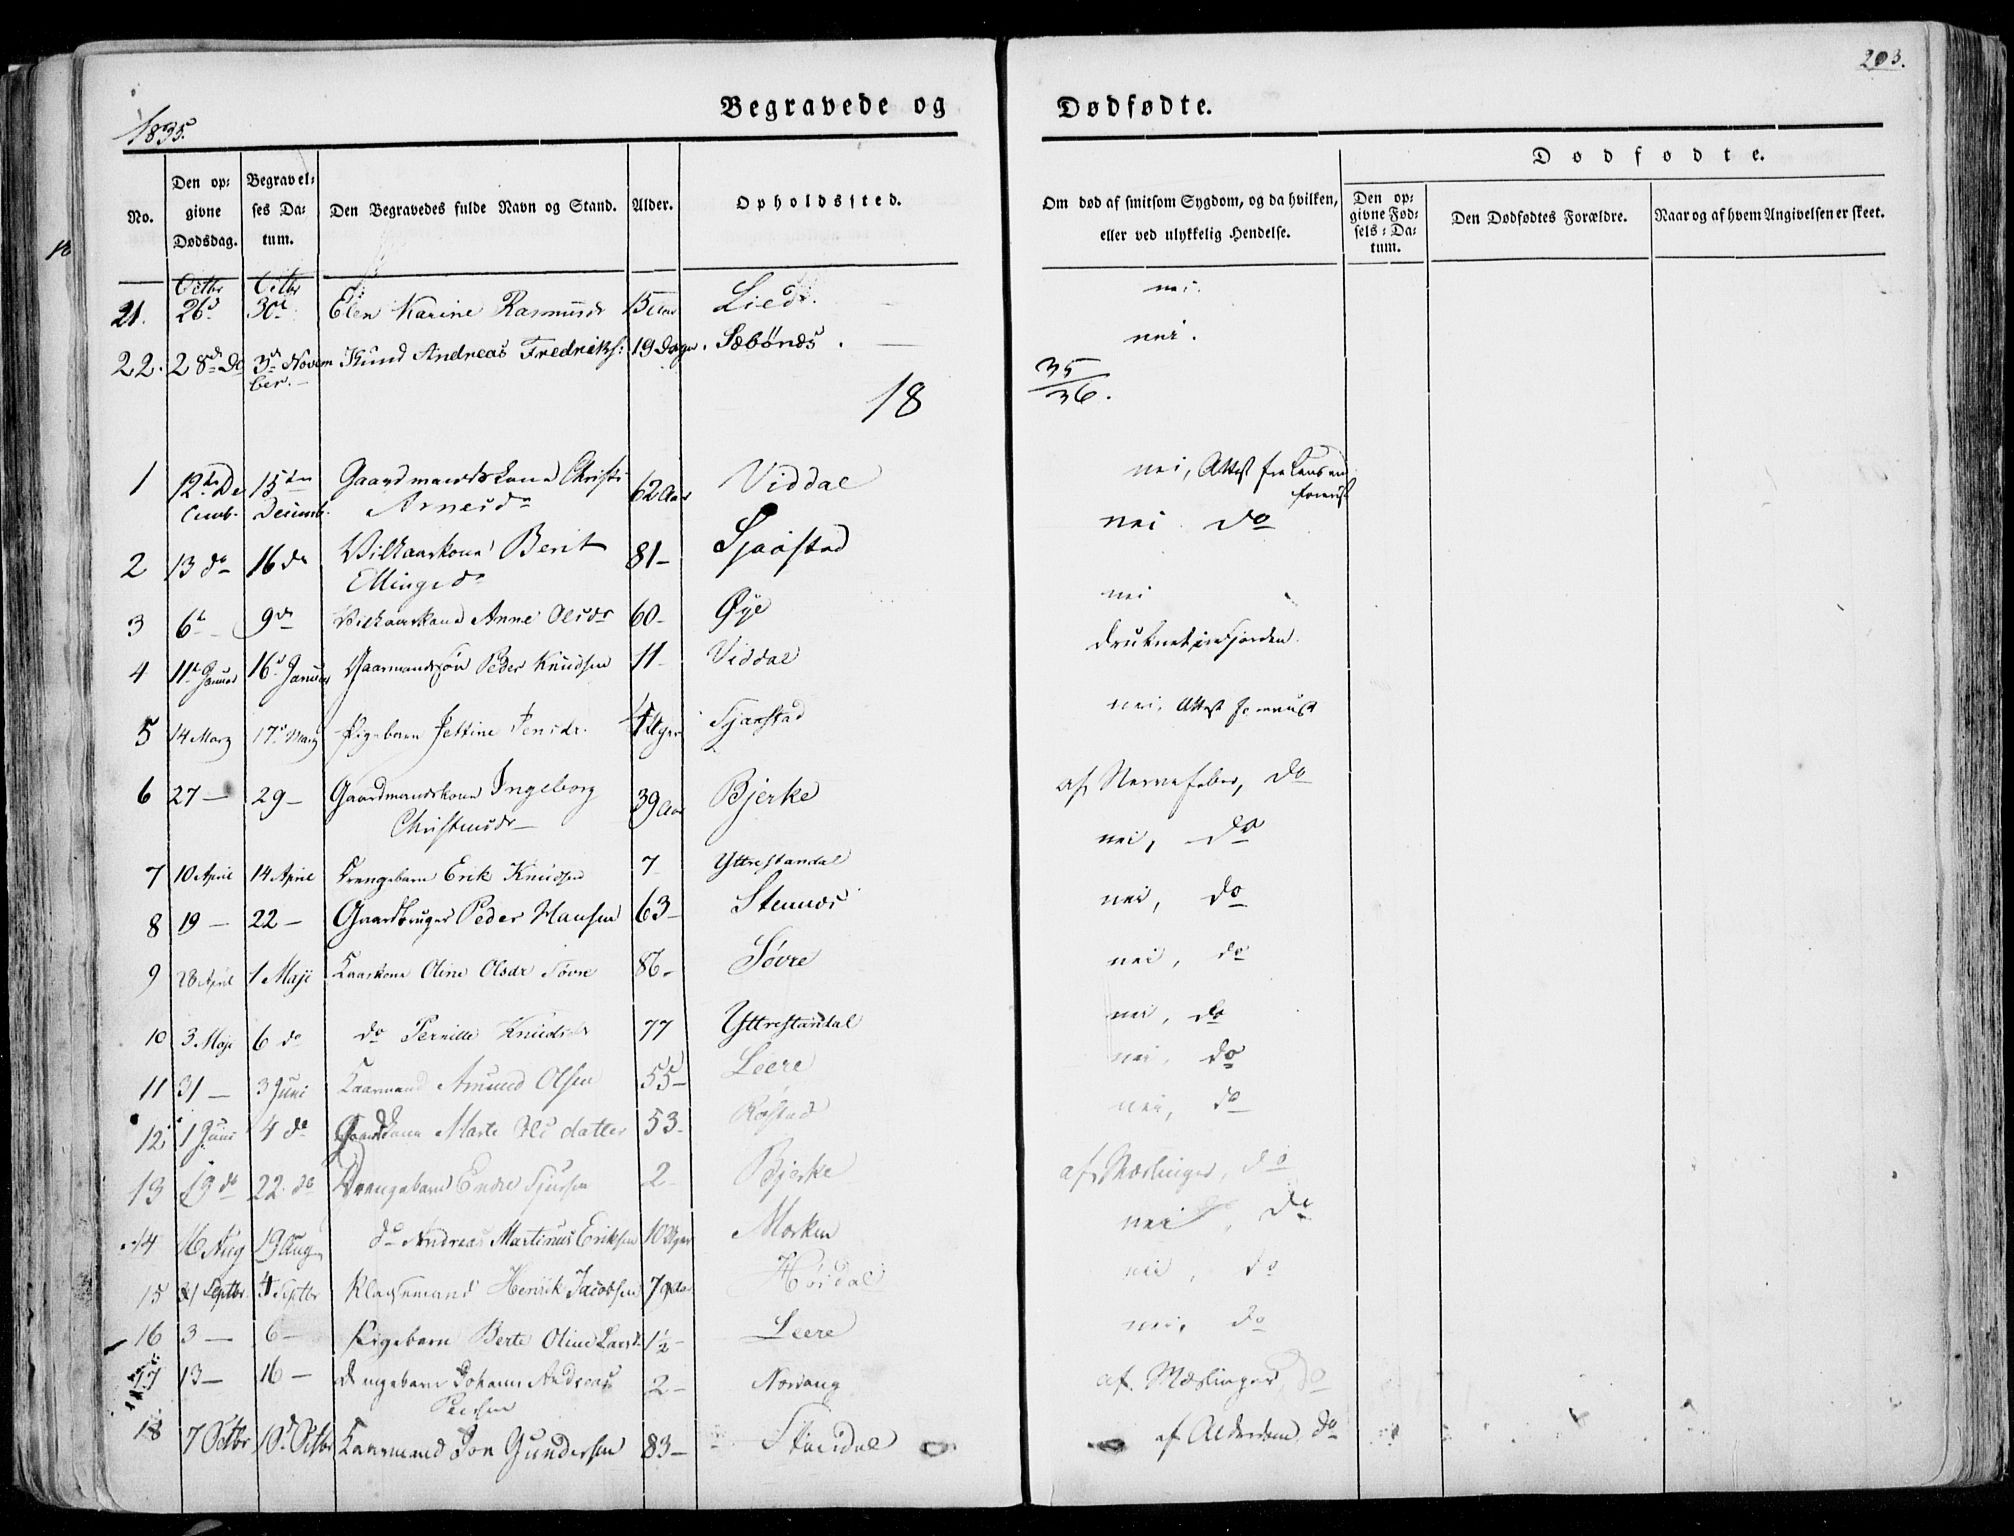 203.
Begravede og Dødfødte.
1835.
No.
Den op: givne Dødsdag.
Begravel: ses Da: tum.
Den Begravedes fulde Navn og Stand.
Alder.
Opholdssted.
Om død af smitsom Sygdom, og da hvilken, eller ved ulykkelig Hendelse.
Dødfødte.
Den op: givne Fød: sels: Da: tum.
Den Dødfødtes Forældre.
Naar og af hvem Angivelsen er skeet.
18
Octbr Octbr
21. 26d 30d Elen Karine Rasmusdr 15 Aar nei.
22. 28d Do 3d Novem ber. Knud Andreas Fredriks: 19 Dage. Sæbønes. nei.
18 35/36.
1 12te De cemb. 15de Decemb. Gaardmandskone Christi Arnesdr 62 Aar Viddal nei, Attest fra Lensmd
2 13 do 16 do Vilkaarskone Berit Ellingsdr 81 – nei do
3 6te 9de Vilkaarskone Anne Olsdr 60 – Øye nei
4 11te Januar 16d Januar Gaarmandssøn Peder Knudsen 11 – Viddal druknet i Fjorden.
5 14 Marz 17d Marz Pigebarn Jensdr. Uger nei, Attest
6 27 – 29 – Gaardmandskone Ingeborg Christensdr – 39 Aar Bjerke af Nervefeber, do
7 10 April 14 April Drengebarn Erik Knudsen 7 Yttrestandal nei, do
8 19 – 22 – Gaardbruger Peder Hansen 63 – Stennes nei, do
9 28 April 1 Maji Kaarkone Oline Olsdr Søvre 86 – Søvre nei, do
10 3 Maji 6 do do Pernille Knudsdr 77 Yttrestandal nei, do
11 31 – 3 Juni Kaarmand Amund Olsen 55 – Leere nei, do
12 1 Juni 4 do Marte Ols datter 53 – nei, do
13 19 do 22 do Drengebarn Endre Sjursen 2 – Bjerke af Mæslinger, do
14 16 Aug 19 Aug do Andreas Martinus Eriksen 10 Uger Morken nei, do
15 31 Septbr 4 Septbr Henrik Jacobsen nei, do
16 3 – 6 – Pigebarn Berte Oline Larsdr 1½ – Leere nei, do
17 13 – 16 – Drengebarn Johann Andreas Peersen 2 – Norang af Mæslinger, do
18 7 Octbr 10d Octbr Kaarmand Jon Gundersen 83 – Standal af Alderdom, do